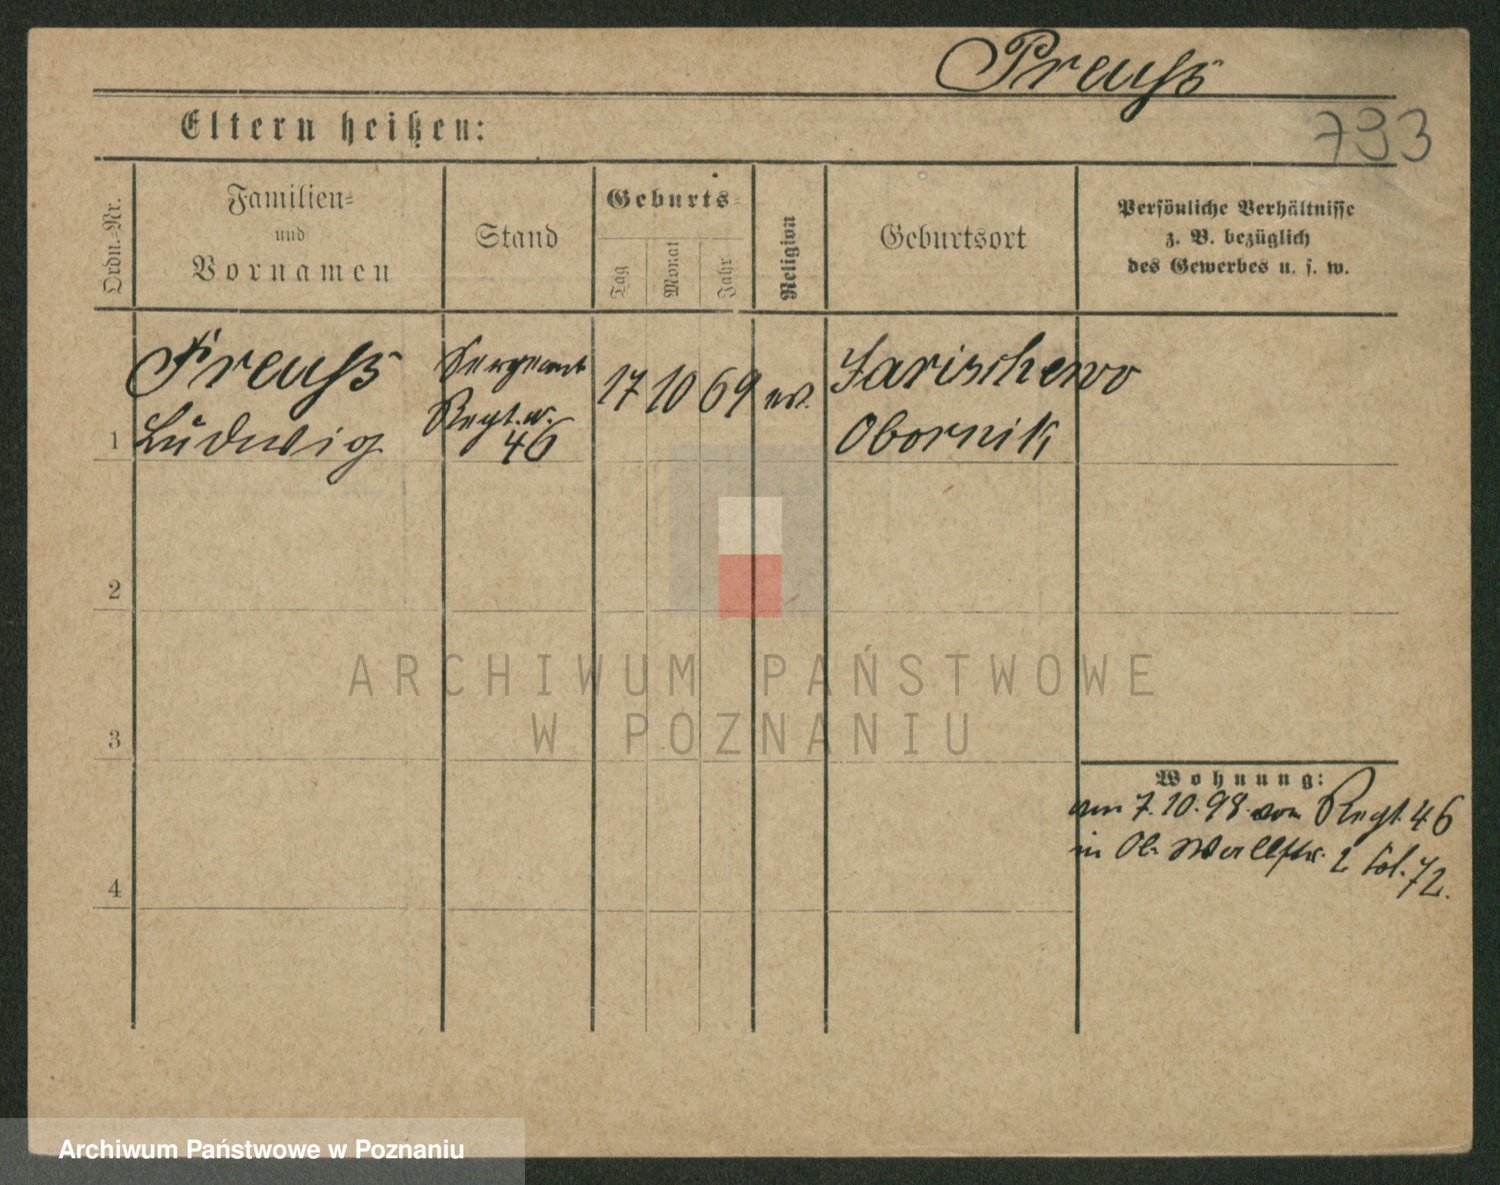 Preuß
793
Eltern heißen:
Ordn.-Nr.
Familien-
und
Vornamen
Stand
Geburts-
Tag
Monat
Jahr
Religion
Geburtsort
Persönliche Verhältnisse
z. B. bezüglich
des Gewerbes u. s. w.
Preuß
Ludwig
Sergeant
Regt.
46
17
10
69
ev.
Jarischewo
Obornik
1
2
3
4
Wohnung:
am 7.10.98 vom Regt 46
in Ob. Wallstr. 2 72.
ARCHIWUM PAŃSTWOWE
W POZNANIU
Archiwum Państwowe w Poznaniu